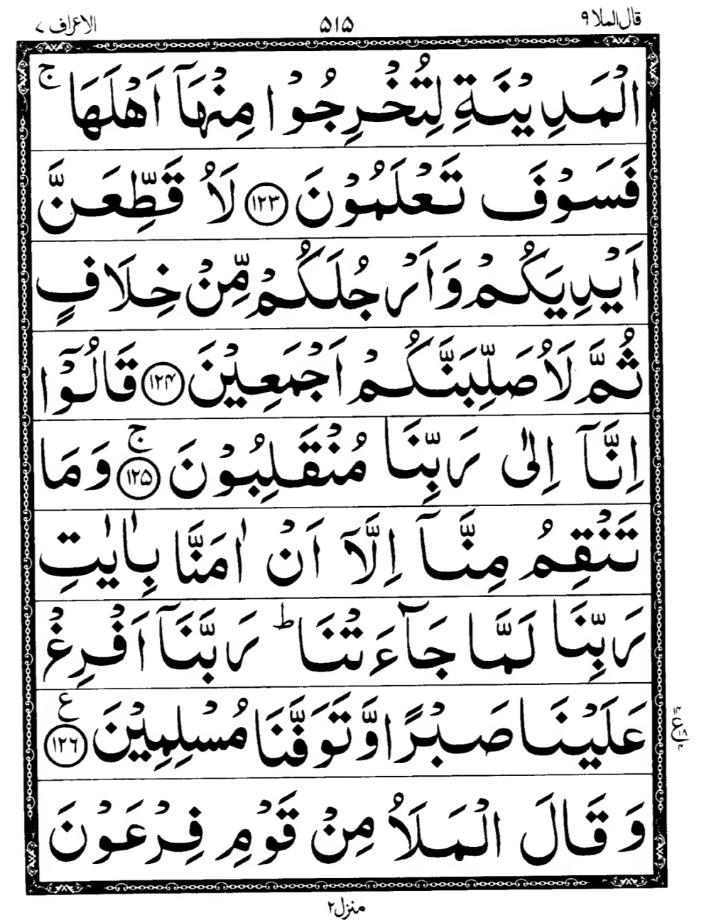 قال الملا ۹ ۵۱۵ الاعراف ۷
الْمَدِيْنَةِ لِتُخْرِجُوْا مِنْهَآ اَهْلَهَا ۚ
فَسَوْفَ تَعْلَمُوْنَ ﴿۱۲۳﴾ لَاُ قَطِّعَنَّ
اَيْدِيَكُمْ وَاَرْجُلَكُمْ مِّنْ خِلَافٍ
ثُمَّ لَاُصَلِّبَنَّكُمْ اَجْمَعِيْنَ ﴿۱۲۴﴾ قَالُوْٓا
اِنَّآ اِلٰى رَبِّنَا مُنْقَلِبُوْنَ ۚ﴿۱۲۵﴾ وَمَا
تَنْقِمُ مِنَّآ اِلَّآ اَنْ اٰمَنَّا بِاٰيٰتِ
رَبِّنَا لَمَّا جَآءَتْنَا ؕ رَبَّنَآ اَفْرِغْ
عَلَيْنَا صَبْرًا وَّتَوَفَّنَا مُسْلِمِيْنَ ﴿۱۲۶﴾ ع
ع ۱۴ ۱۸ ۴
وَقَالَ الْمَلَاُ مِنْ قَوْمِ فِرْعَوْنَ
منزل ۲